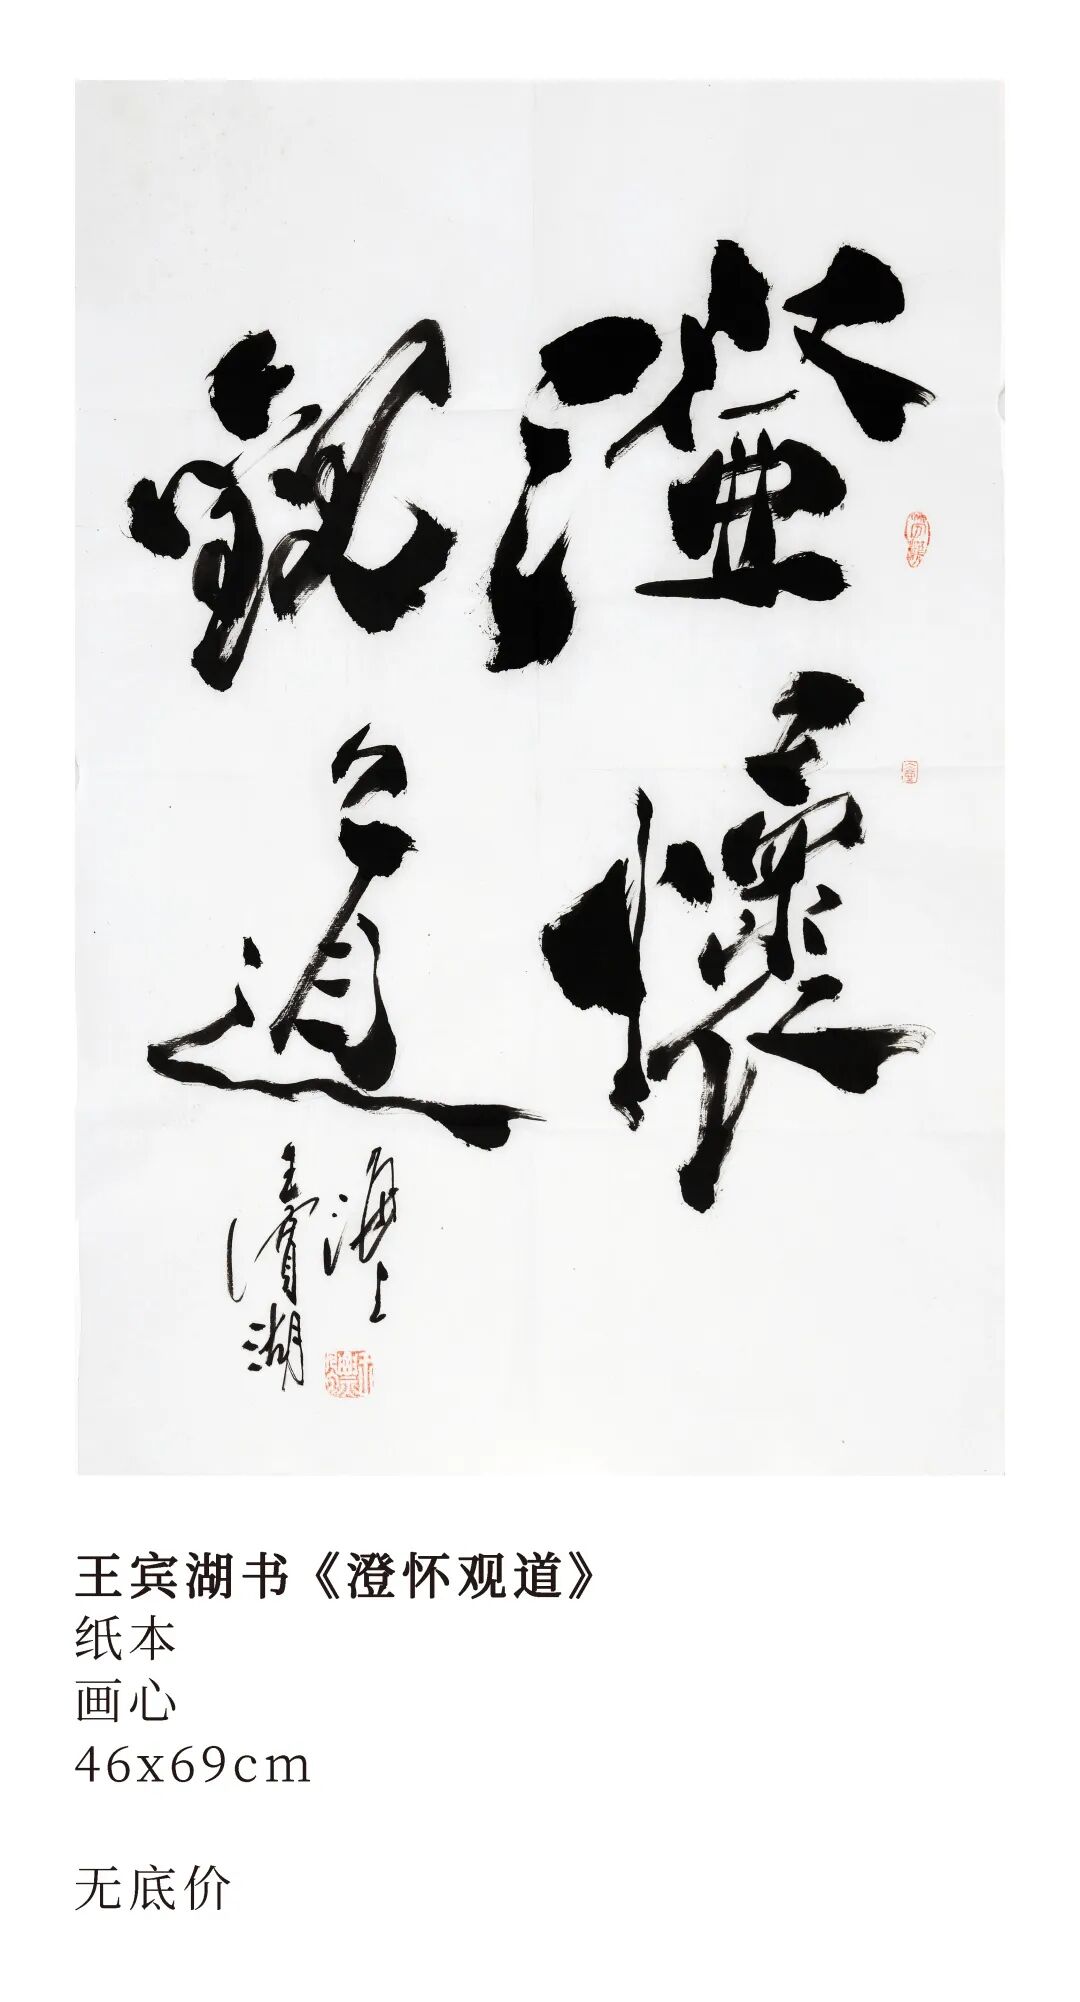 澄懷
觀道
海上
王賓湖
王宾湖书《澄怀观道》
纸本
画心
46x69cm
无底价